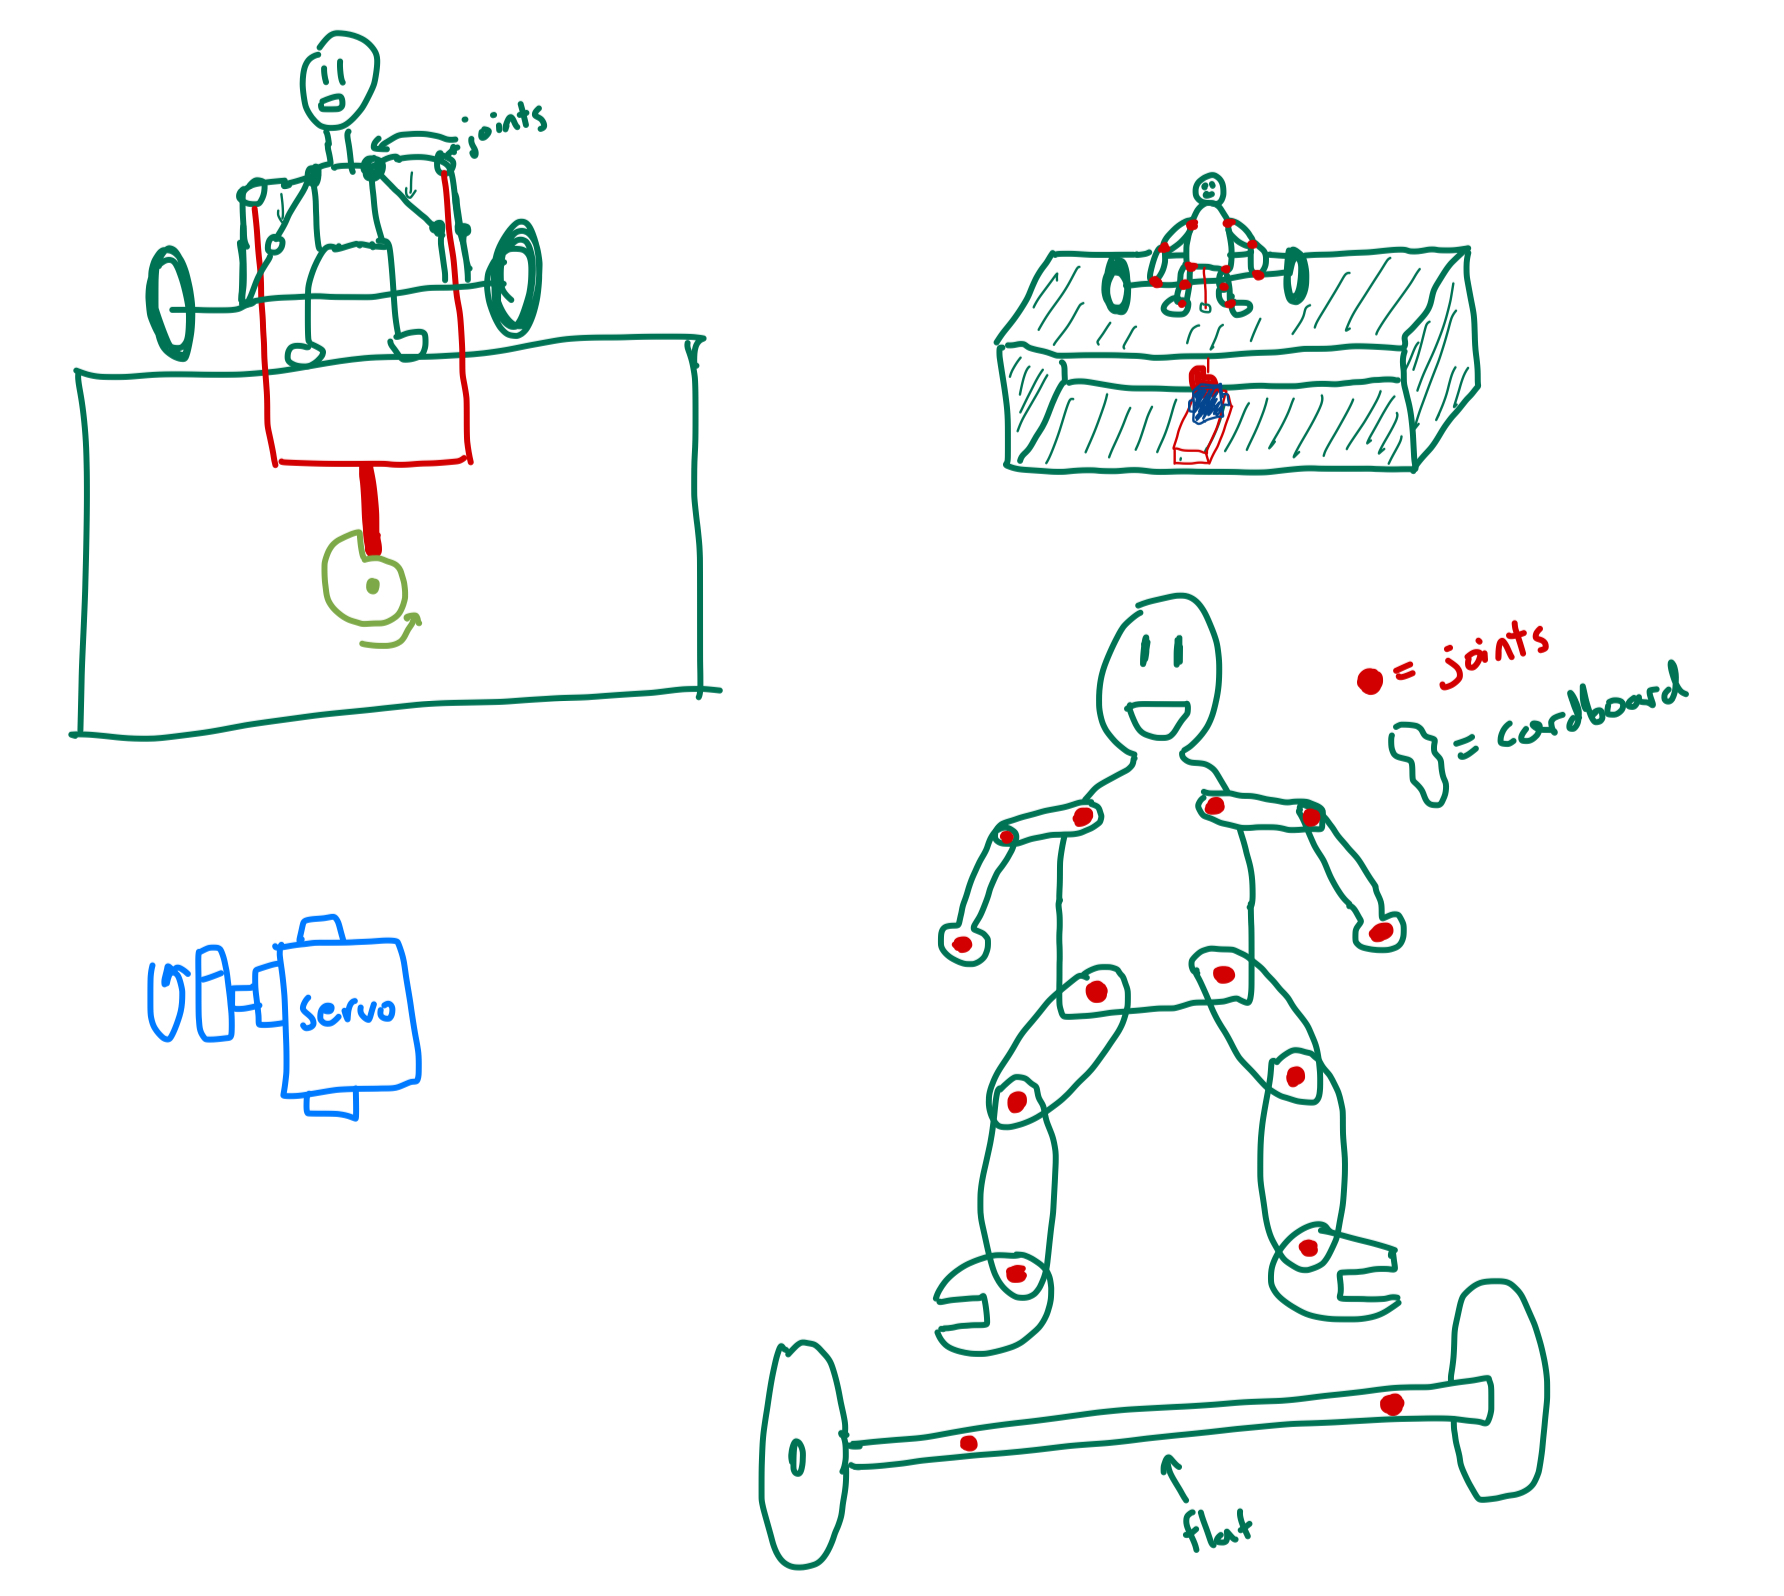 joints
= joints
= cardboard
servo
flat